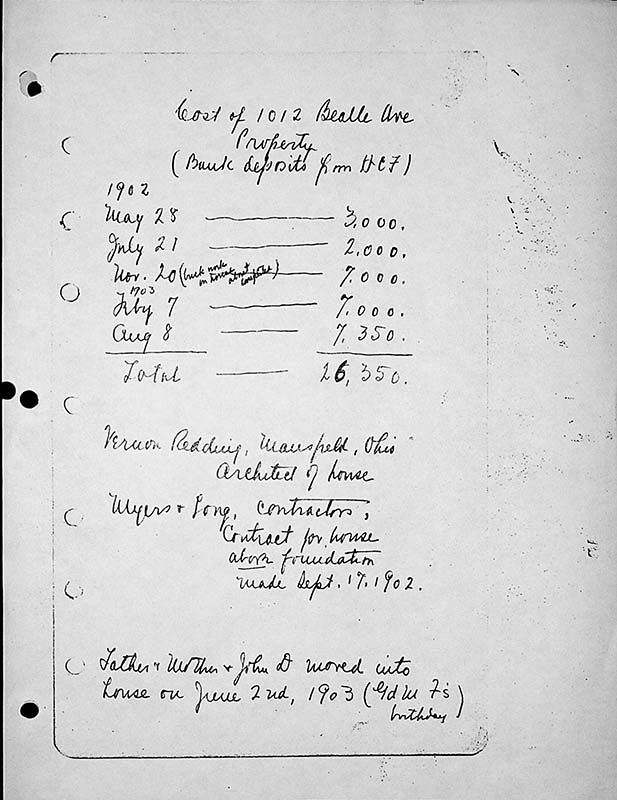 Cost of 1012 Bealle Ave
Property
(Bank deposits from HCF)
1902
May 28 — 3,000.
July 21 — 2,000.
Nov. 20 (brick work on house about completed) — 7,000.
1903
Feby 7 — 7,000.
Aug 8 — 7,350.
Total — 26,350.
Vernon Redding, Mansfield, Ohio
Architect of house
Myers + Long, contractors,
Contract for house
above foundation
made Sept. 17, 1902.
Father + Mother + John D moved into
house on June 2nd, 1903 (Gd M F's
birthday)